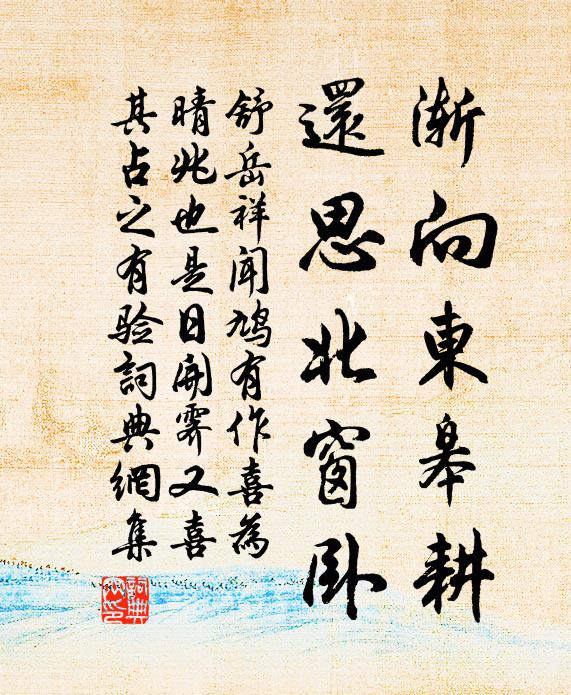 漸向東皋耕
還思北窗卧
舒岳祥聞鳩有作喜為
晴兆也是日開霽又喜
其占之有验詞典網集